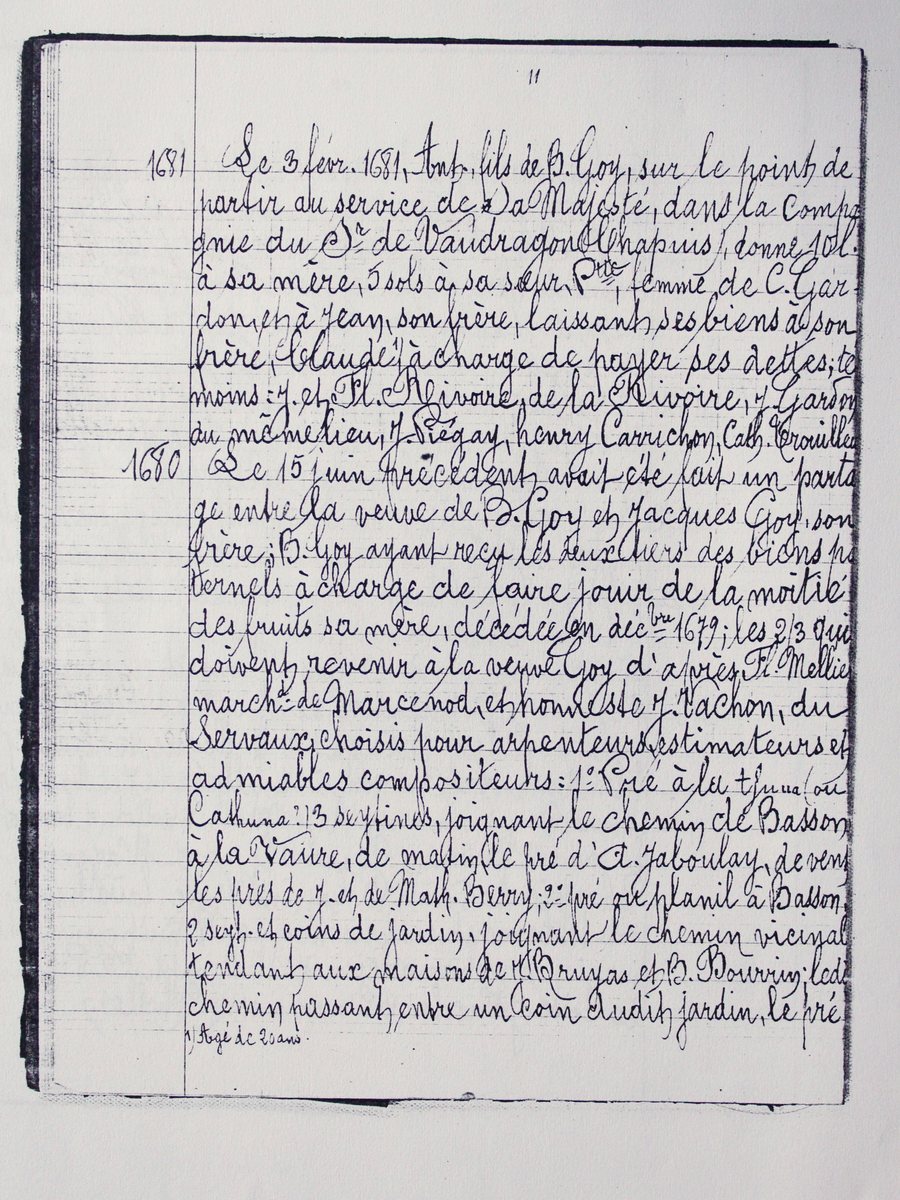 11
1681 Le 3 févr. 1681, Ant. fils de B. Goy, sur le point de
partir au service de Sa Majesté, dans la compa
gnie du Sr de Vaudragon (Chapuis), donne 10 l.
à sa mère, 5 sols à sa sœur, Ptte, femme de C. Gar-
don, et à Jean, son frère, laissant ses biens à son
frère, Claude 1) à charge de payer ses dettes; té
moins: J. et Fl. Rivoire, de la Rivoire, J. Gardon
du même lieu, J. Piégay, henry Carrichon, Cath. Trouillet
1680 Le 15 juin précédent avait été fait un parta
ge entre la veuve de B. Goy et Jacques Goy, son
frère; B. Goy ayant reçu les deux tiers des biens pa
ternels à charge de faire jouir de la moitié
des fruits sa mère, décédée en décbre 1679; les 2/3 qui
doivent revenir à la veuve Goy d'après Fl. Mellier
marchd de Marcenod, et honneste J. Vachon, du
Servaux, choisis pour arpenteurs, estimateurs et
admiables compositeurs: 1° Pré à la thuna (ou
Cathuna?) 3 seytines, joignant le chemin de Basson
à la Vaure, de matin, le pré d'A. Jaboulay, de vent
les prés de J. et de Math. Berry; 2° pré ou planil à Basson,
2 seyt. et coins de jardin, joignant le chemin vicinal
tendant aux maisons de J. Bruyas et B. Bourrin; ledi
chemin passant entre un coin dudit jardin, le pré
1) Agé de 20 ans.